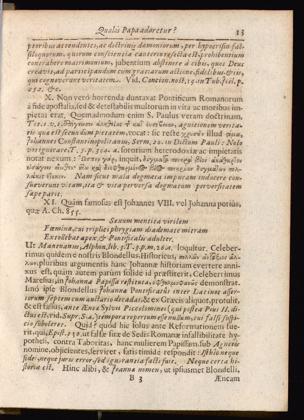 Qualis Papa adoretur? 13
ptoribus attendentes, ac doctrinis dæmoniorum, per hypocrisin fal-
siloquorum, quorum conscientia cauterio resecta est, prohibentium
contrahere matrimonium, jubentium abstinere à cibis, quos Deus
creavit, ad participandum cum gratiarum actione, fidelibus, & iis,
qui cognoverunt veritatem. Vid.
X. Non verò horrenda duntaxat Pontificum Romanorum
à fide apostasia, sed & detestabilis multorum in vita ac moribus im-
pietas erat. Quemadmodum enim S. Paulus veram doctrinam,
Tit. 1. v. 1.
tis quæ est secundum pietatem, vocat: sic recte illud
Johannes Constantinopolitanus, Serm. 20. in Dictum Pauli: Nolo
vos ignorare T. 5. p. 304. a fœtorum heterodoxiæ ac impietatis
notat nexum:
Nam sane mala dogmata impuram inducere con-
sueverunt vitam, ita & vita perversa dogmatum perversitatem
sæpe parit.
XI. Quàm famosus est Johannes VIII. vel Johanna potiùs,
quæ A. Ch. 855.
Sexum mentita virilem
Fœmina, cui triplici phrygiam diademate mitram
Extollebat apex, & Pontificalis adulter.
Ut Mantuanus, Alphon. lib. 3. T. 3. p. m. 240. loquitur. Celeber-
rimus quidem è nostris Blondellus Historicus,
pluribus argumentis hanc Johannæ historiam evertere anni-
xus est, quàm autem parùm solidè id præstiterit, Celeberrimus
Maresius, in Johanna Papissa restituta, demonstrat.
Imò ipse Blondellus Johannæ Pontificatûs inter Latinos asser-
torum septem cum auctario decadas, & ex Græcis aliquot, protulit,
& est falsus, ante Ænea Sylvii Piccolominei (qui postea Pius II. di-
ctus est, vid. Supr. S. 2.) tempora reperturum esse nullum, cui falsi suspi-
cio suboleret. Quid? quod hic solus ante Reformationem fue-
rit, qui, Epist. 130. ut falsæ fixæ de Sedis Romanæ infallibilitate hy-
pothesi, contra Taboritas, hanc mulierem Papissam, sub Agnetis
nomine, objicientes, serviret, satis timidè respondit: Istheic neque
fidei, neque juris error, sed ignorantia facti fuit. Neque certa hi-
storia est. Hinc alibi, & Joannæ nomen, ut ipsiusmet Blondelli,
B 3 Æneam